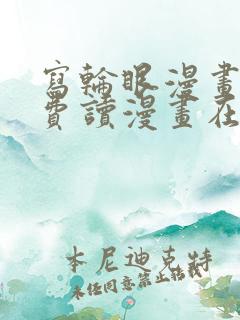 寫輪眼漫畫
費讀漫畫在
本尼迪克特
未经同意禁止转载